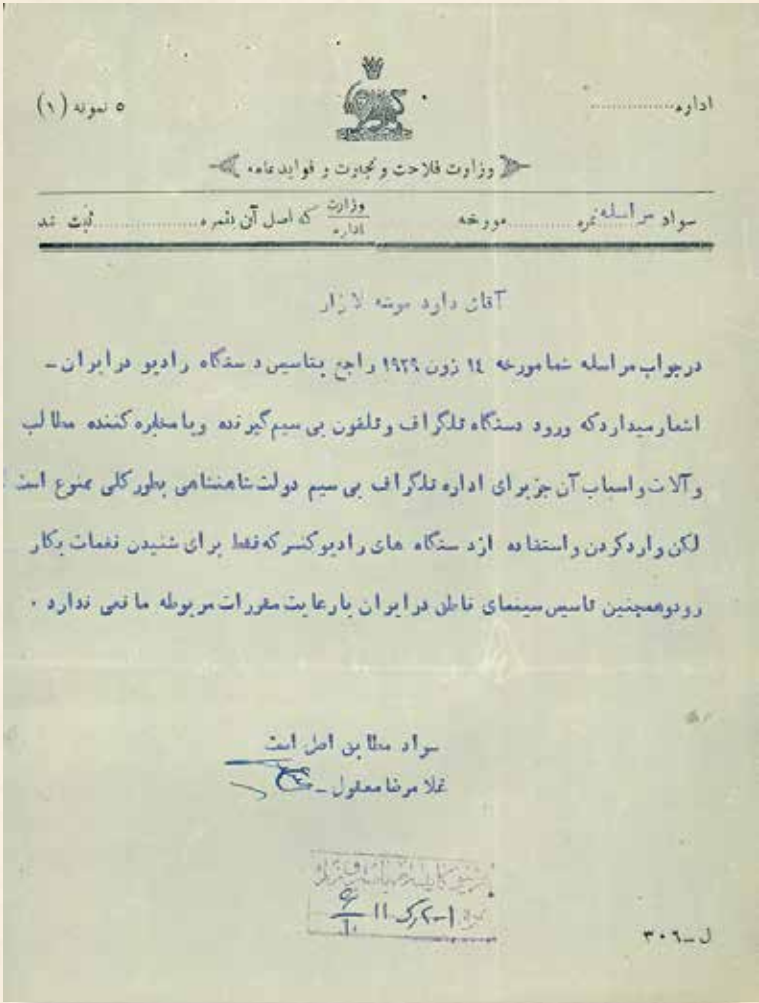 اداره..............
۵ نمونه (۱)
وزارت فلاحت و تجارت و فواید عامه
سواد مراسله نمره ............ مورخه وزارت اداره که اصل آن بنمره .................. ثبت شد
آقای دارد موشه لازار
در جواب مراسله شما مورخه ١٤ ژون ١٩٢٩ راجع بتاسیس دستگاه رادیو در ایران ـ
اشعار میدارد که ورود دستگاه تلگراف و تلفون بی سیم گیرنده و یا مخابره کننده مطالب
و آلات و اسباب آن جز برای اداره تلگراف بی سیم دولت شاهنشاهی بطور کلی ممنوع است
لکن وارد کردن و استفاده از دستگاه های رادیو کنسر که فقط برای شنیدن نغمات بکار
رود و همچنین تاسیس سینمای ناطق در ایران با رعایت مقررات مربوطه مانعی ندارد .
سواد مطابق اصل است
غلامرضا معقول ـ
ل ـ ۳۰۶